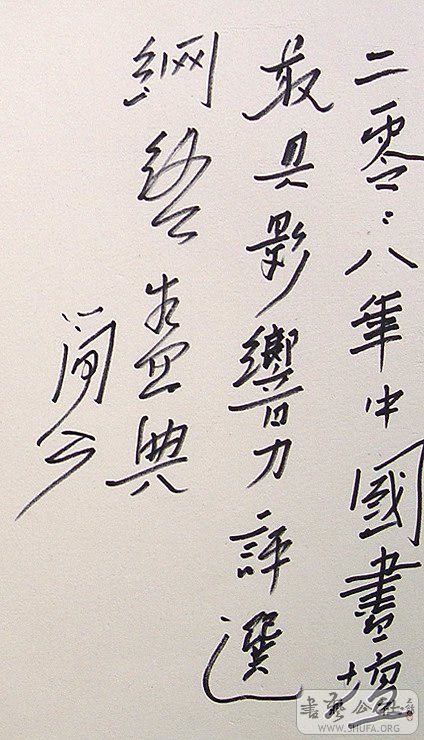 二零〻八年中國畫壇
最具影響力評選
網絡盛典
書藝公社
WWW.SHUFA.ORG